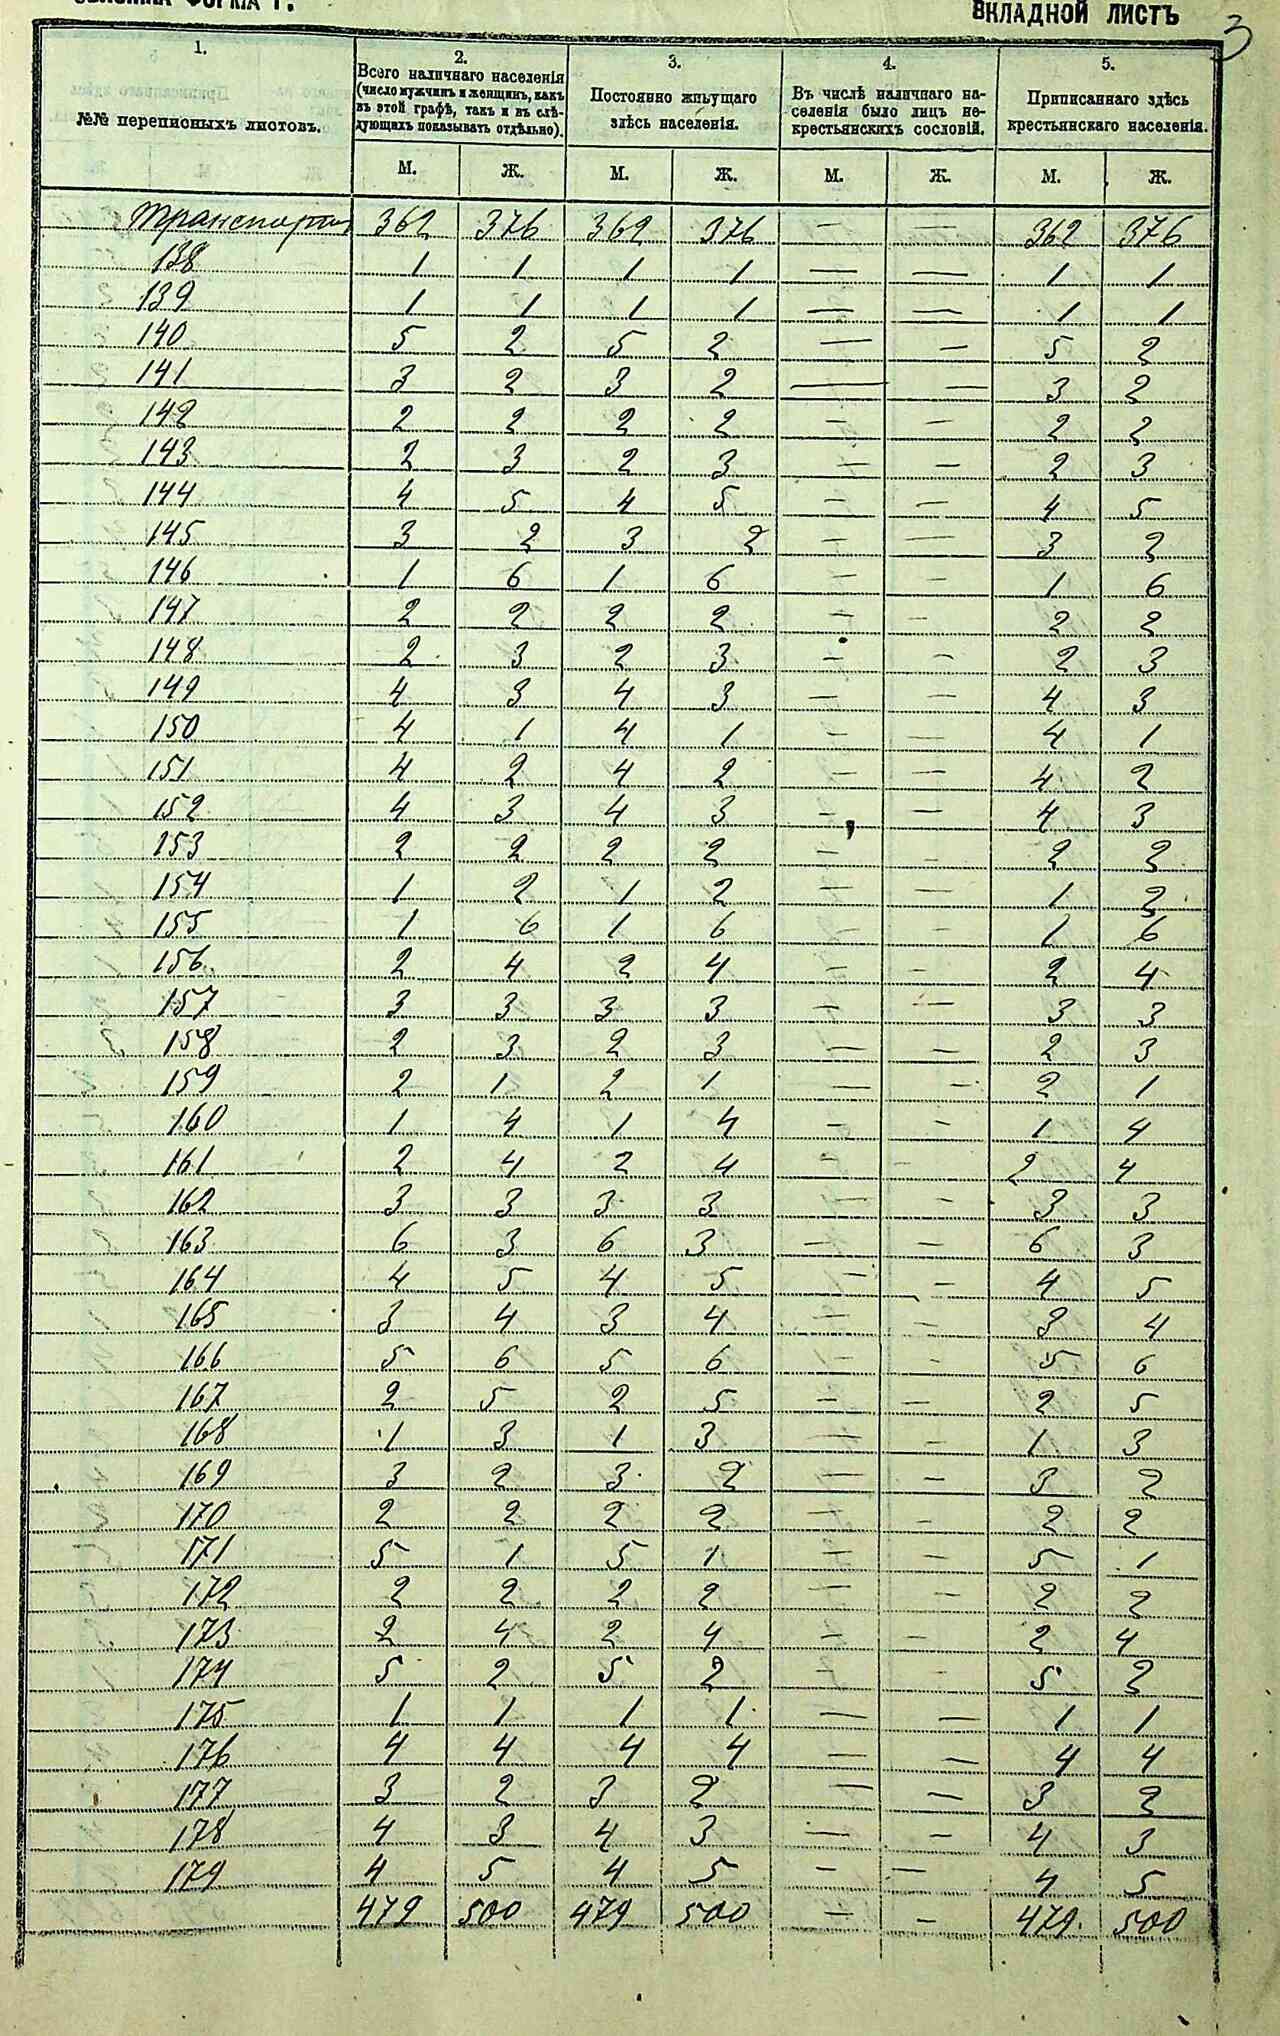 ВКЛАДНОЙ ЛИСТЪ
3
1. 2. 3. 4. 5.
№№ переписныхъ листовъ.
Всего наличнаго населенія
(число мужчинъ и женщинъ, какъ
въ этой графѣ, такъ и въ слѣ-
дующихъ показывать отдѣльно).
Постоянно живущаго
здѣсь населенія.
Въ числѣ наличнаго на-
селенія было лицъ не-
крестьянскихъ сословій.
Приписаннаго здѣсь
крестьянскаго населенія.
М. Ж. М. Ж. М. Ж. М. Ж.
Транспортъ 362 376 362 376 — — 362 376
138 1 1 1 1 — — 1 1
139 1 1 1 1 — — 1 1
140 5 2 5 2 — — 5 2
141 3 2 3 2 — — 3 2
142 2 2 2 2 — — 2 2
143 2 3 2 3 — — 2 3
144 4 5 4 5 — — 4 5
145 3 2 3 2 — — 3 2
146 1 6 1 6 — — 1 6
147 2 2 2 2 — — 2 2
148 2 3 2 3 — — 2 3
149 4 3 4 3 — — 4 3
150 4 1 4 1 — — 4 1
151 4 2 4 2 — — 4 2
152 4 3 4 3 — — 4 3
153 2 2 2 2 — — 2 2
154 1 2 1 2 — — 1 2
155 1 6 1 6 — — 1 6
156 2 4 2 4 — — 2 4
157 3 3 3 3 — — 3 3
158 2 3 2 3 — — 2 3
159 2 1 2 1 — — 2 1
160 1 4 1 4 — — 1 4
161 2 4 2 4 — — 2 4
162 3 3 3 3 — — 3 3
163 6 3 6 3 — — 6 3
164 4 5 4 5 — — 4 5
165 3 4 3 4 — — 3 4
166 5 6 5 6 — — 5 6
167 2 5 2 5 — — 2 5
168 1 3 1 3 — — 1 3
169 3 2 3 2 — — 3 2
170 2 2 2 2 — — 2 2
171 5 1 5 1 — — 5 1
172 2 2 2 2 — — 2 2
173 2 4 2 4 — — 2 4
174 5 2 5 2 — — 5 2
175 1 1 1 1 — — 1 1
176 4 4 4 4 — — 4 4
177 3 2 3 2 — — 3 2
178 4 3 4 3 — — 4 3
179 4 5 4 5 — — 4 5
479 500 479 500 — — 479 500